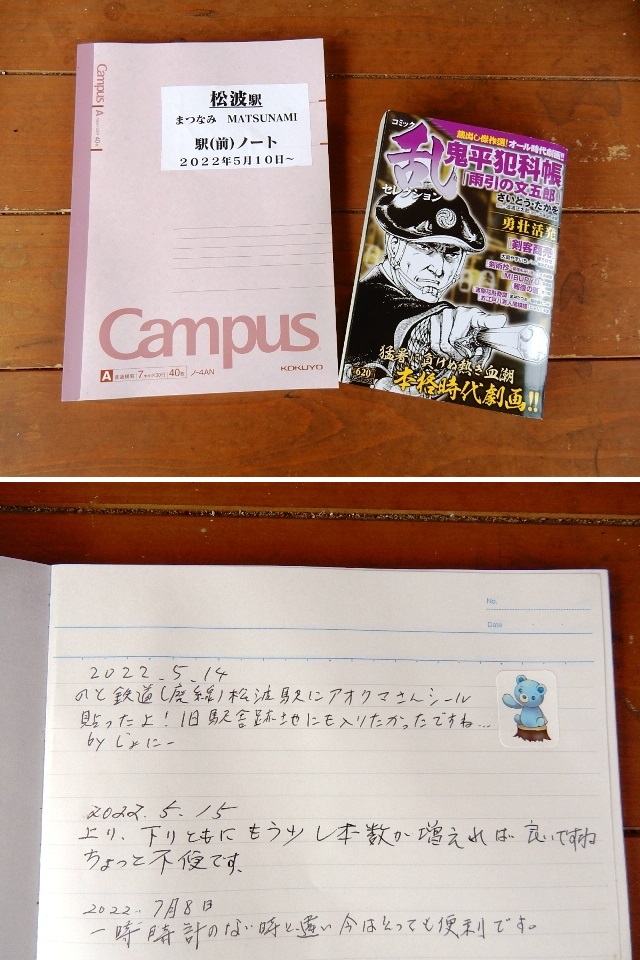 Campus
A
松波駅
まつなみ MATSUNAMI
駅(前)ノート
2022年5月10日～
Campus
A 普通横罫 7ミリ×30行 40枚 ノ-4AN
KOKUYO
コミック
乱
セレクション
蔵出し傑作選!オール時代劇画!!
鬼平犯科帳
雨引の文五郎
さいとう・たかを
勇壮活発
剣客商売
猛暑に負けぬ熱き血潮
本格時代劇画!!
620
No.
Date
2022.5.14
のと鉄道(廃線)松波駅にアオクマさんシール
貼ったよ!旧駅舎跡地にも入りたかったですね…
by じょにー
2022.5.15
上り、下りともにもう少し本数が増えれば良いですね
ちょっと不便です。
2022.7月8日
一時時計のない時と違い今はとっても便利です。